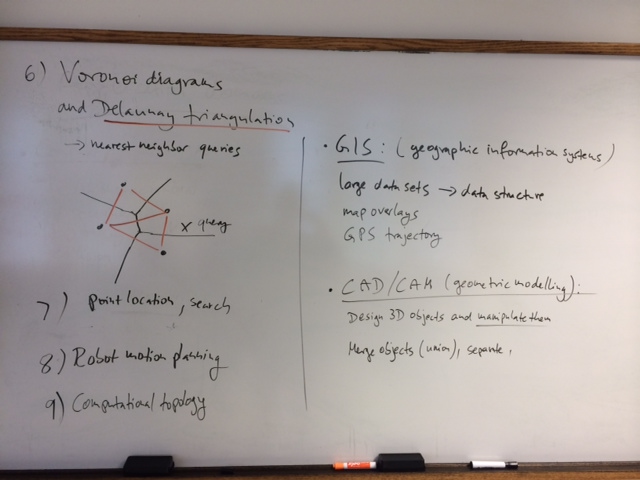 6) Voronoi diagrams
and Delaunay triangulation
→ nearest neighbor queries
x query
7) point location, search
8) Robot motion planning
9) Computational topology
• GIS: (geographic information systems)
large data sets → data structure
map overlays
GPS trajectory
• CAD/CAM (geometric modelling):
Design 3D objects and manipulate them
Merge objects (union), separate,